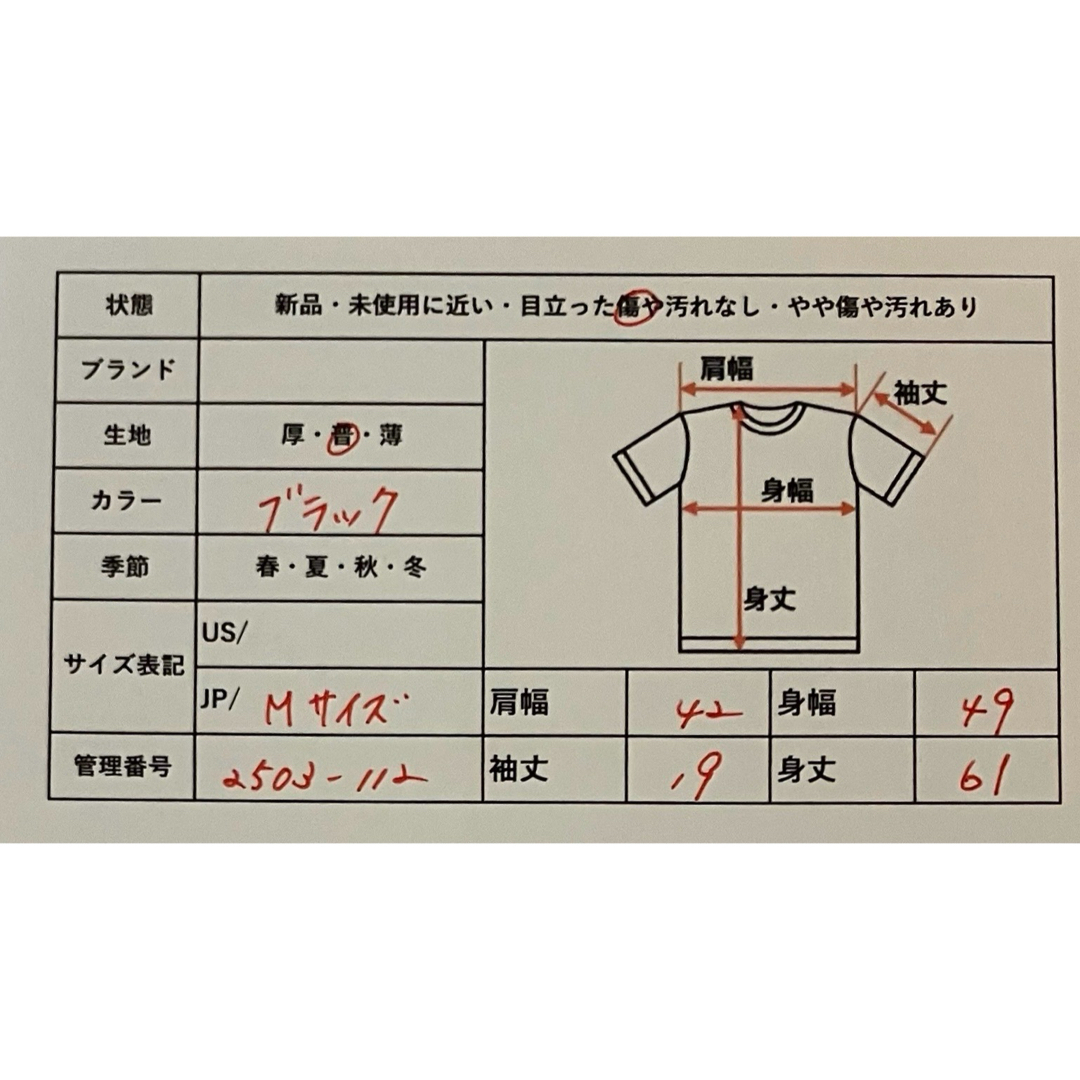 状態 新品・未使用に近い・目立った傷や汚れなし・やや傷や汚れあり
ブランド
生地 厚・普・薄
カラー ブラック
季節 春・夏・秋・冬
サイズ表記
US/
JP/ Mサイズ
管理番号 2503-112
肩幅
袖丈
身幅
身丈
肩幅 42 身幅 49
袖丈 19 身丈 61